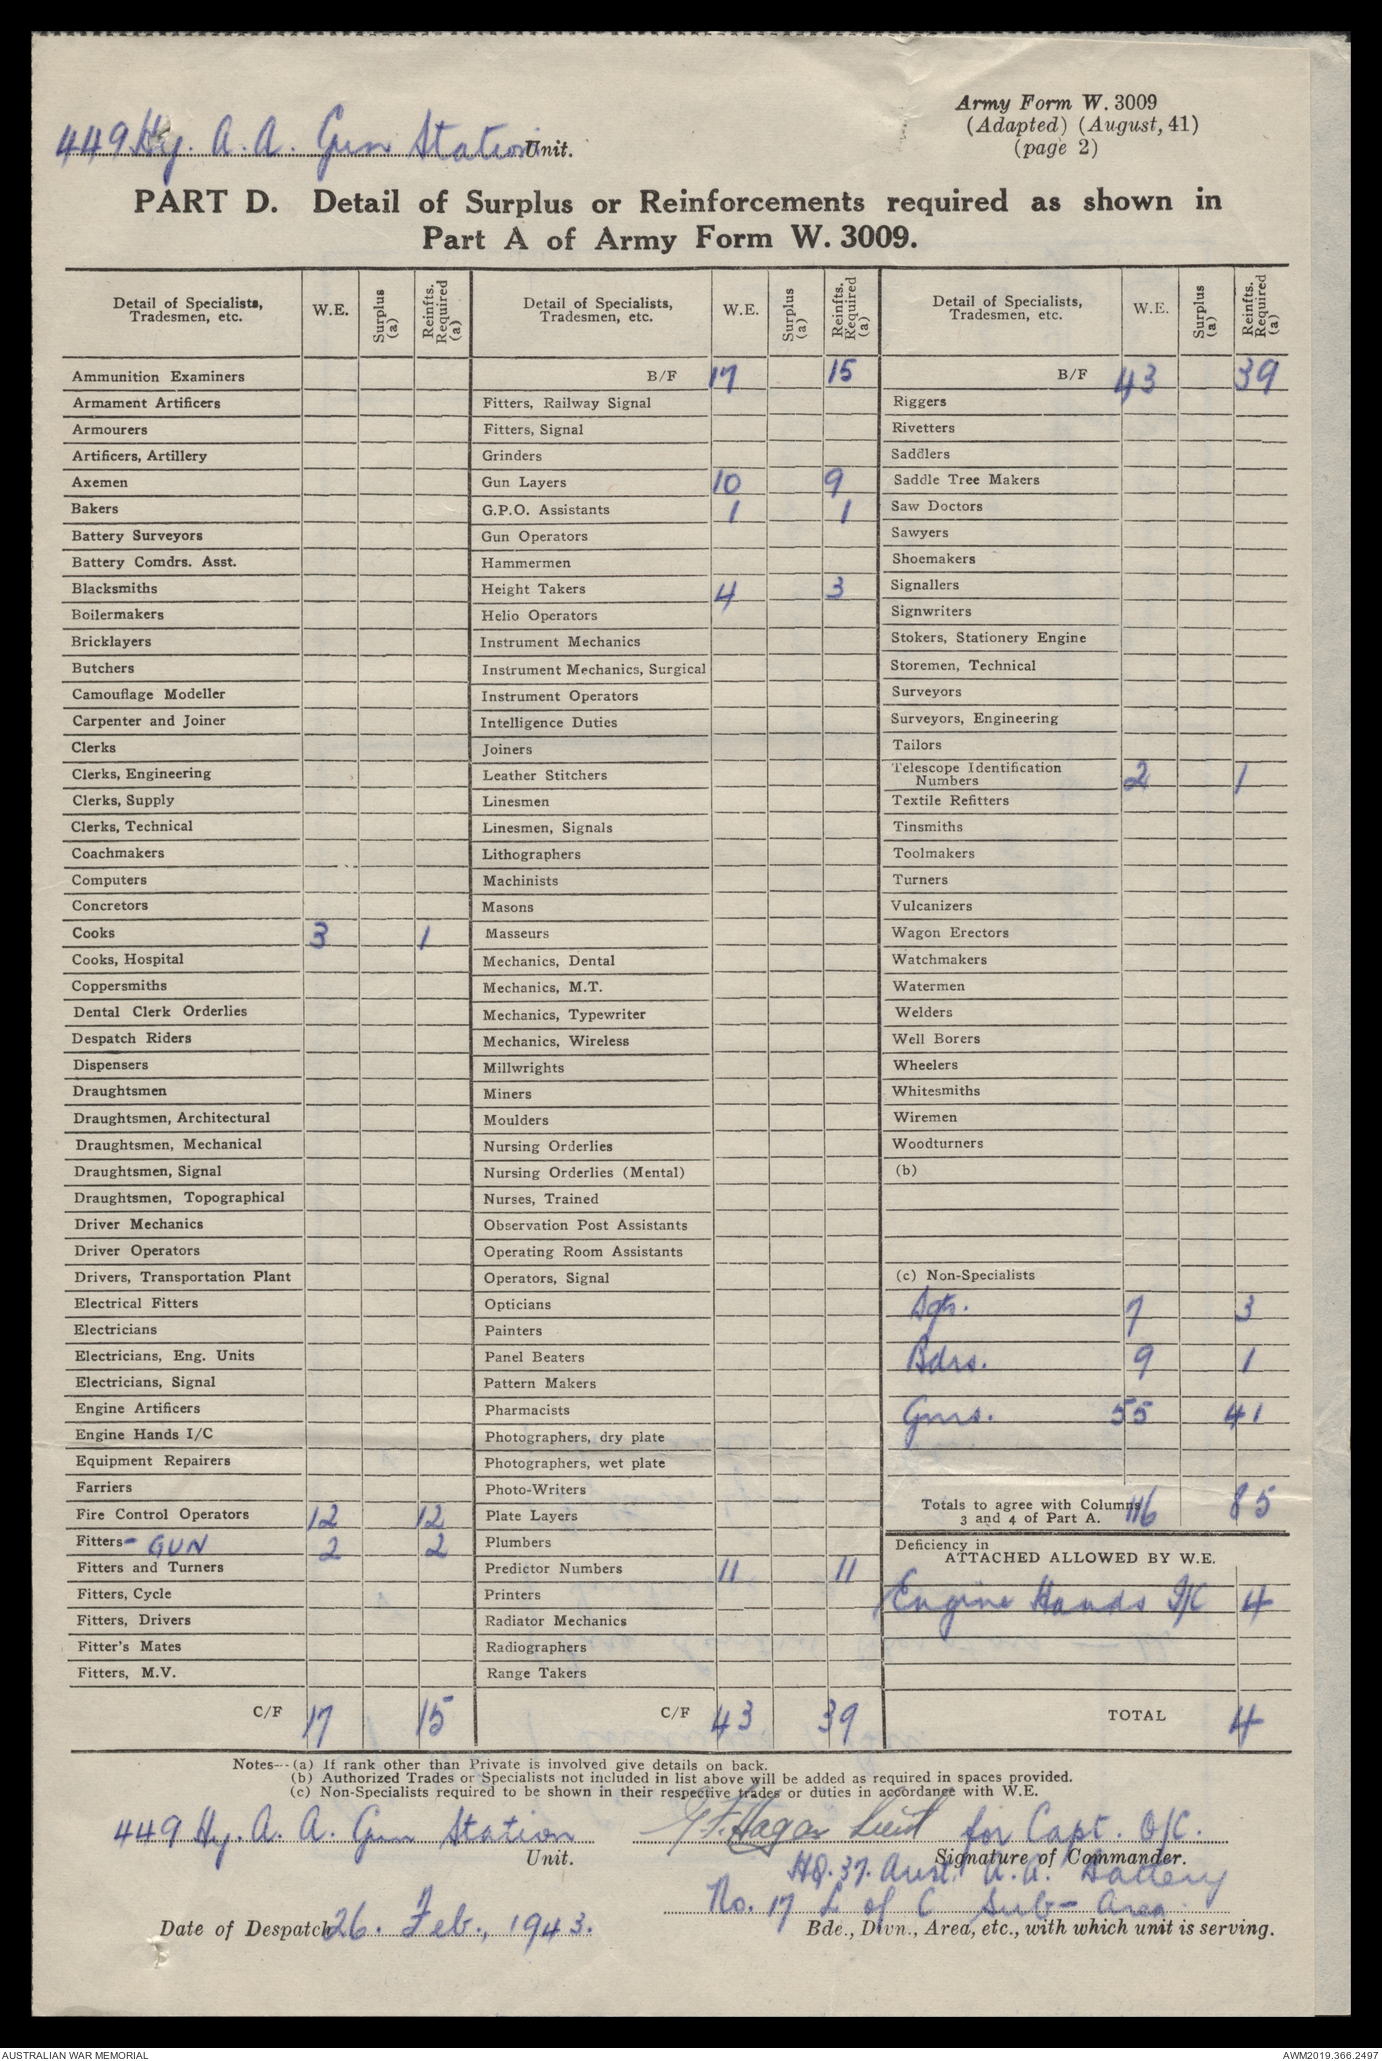 Army Form W. 3009
(Adapted) (August, 41)
(page 2)
449 Hy. A. A. Gun Station Unit.
PART D. Detail of Surplus or Reinforcements required as shown in
Part A of Army Form W. 3009.
Detail of Specialists, Tradesmen, etc. W.E. Surplus (a) Reinfts. Required (a)
Ammunition Examiners
Armament Artificers
Armourers
Artificers, Artillery
Axemen
Bakers
Battery Surveyors
Battery Comdrs. Asst.
Blacksmiths
Boilermakers
Bricklayers
Butchers
Camouflage Modeller
Carpenter and Joiner
Clerks
Clerks, Engineering
Clerks, Supply
Clerks, Technical
Coachmakers
Computers
Concretors
Cooks 3 1
Cooks, Hospital
Coppersmiths
Dental Clerk Orderlies
Despatch Riders
Dispensers
Draughtsmen
Draughtsmen, Architectural
Draughtsmen, Mechanical
Draughtsmen, Signal
Draughtsmen, Topographical
Driver Mechanics
Driver Operators
Drivers, Transportation Plant
Electrical Fitters
Electricians
Electricians, Eng. Units
Electricians, Signal
Engine Artificers
Engine Hands I/C
Equipment Repairers
Farriers
Fire Control Operators 12 12
Fitters - GUN 2 2
Fitters and Turners
Fitters, Cycle
Fitters, Drivers
Fitter's Mates
Fitters, M.V.
C/F 17 15
Detail of Specialists, Tradesmen, etc. W.E. Surplus (a) Reinfts. Required (a)
B/F 17 15
Fitters, Railway Signal
Fitters, Signal
Grinders
Gun Layers 10 9
G.P.O. Assistants 1 1
Gun Operators
Hammermen
Height Takers 4 3
Helio Operators
Instrument Mechanics
Instrument Mechanics, Surgical
Instrument Operators
Intelligence Duties
Joiners
Leather Stitchers
Linesmen
Linesmen, Signals
Lithographers
Machinists
Masons
Masseurs
Mechanics, Dental
Mechanics, M.T.
Mechanics, Typewriter
Mechanics, Wireless
Millwrights
Miners
Moulders
Nursing Orderlies
Nursing Orderlies (Mental)
Nurses, Trained
Observation Post Assistants
Operating Room Assistants
Operators, Signal
Opticians
Painters
Panel Beaters
Pattern Makers
Pharmacists
Photographers, dry plate
Photographers, wet plate
Photo-Writers
Plate Layers
Plumbers
Predictor Numbers 11 11
Printers
Radiator Mechanics
Radiographers
Range Takers
C/F 43 39
Detail of Specialists, Tradesmen, etc. W.E. Surplus (a) Reinfts. Required (a)
B/F 43 39
Riggers
Rivetters
Saddlers
Saddle Tree Makers
Saw Doctors
Sawyers
Shoemakers
Signallers
Signwriters
Stokers, Stationery Engine
Storemen, Technical
Surveyors
Surveyors, Engineering
Tailors
Telescope Identification
Numbers 2 1
Textile Refitters
Tinsmiths
Toolmakers
Turners
Vulcanizers
Wagon Erectors
Watchmakers
Watermen
Welders
Well Borers
Wheelers
Whitesmiths
Wiremen
Woodturners
(b)
(c) Non-Specialists
Sgts. 7 3
Bdrs. 9 1
Gnrs. 55 41
Totals to agree with Columns
3 and 4 of Part A. 116 85
Deficiency in
ATTACHED ALLOWED BY W.E.
Engine Hands I/C 4
TOTAL 4
Notes--(a) If rank other than Private is involved give details on back.
(b) Authorized Trades or Specialists not included in list above will be added as required in spaces provided.
(c) Non-Specialists required to be shown in their respective trades or duties in accordance with W.E.
449 Hy. A. A. Gun Station
Unit.
G F Hagar Lieut for Capt. O/C.
Signature of Commander.
HQ. 37. Aust. A.A. Battery
No. 17 L of C Sub-Area
Bde., Divn., Area, etc., with which unit is serving.
Date of Despatch 26. Feb., 1943.
AUSTRALIAN WAR MEMORIAL
AWM2019.366.2497